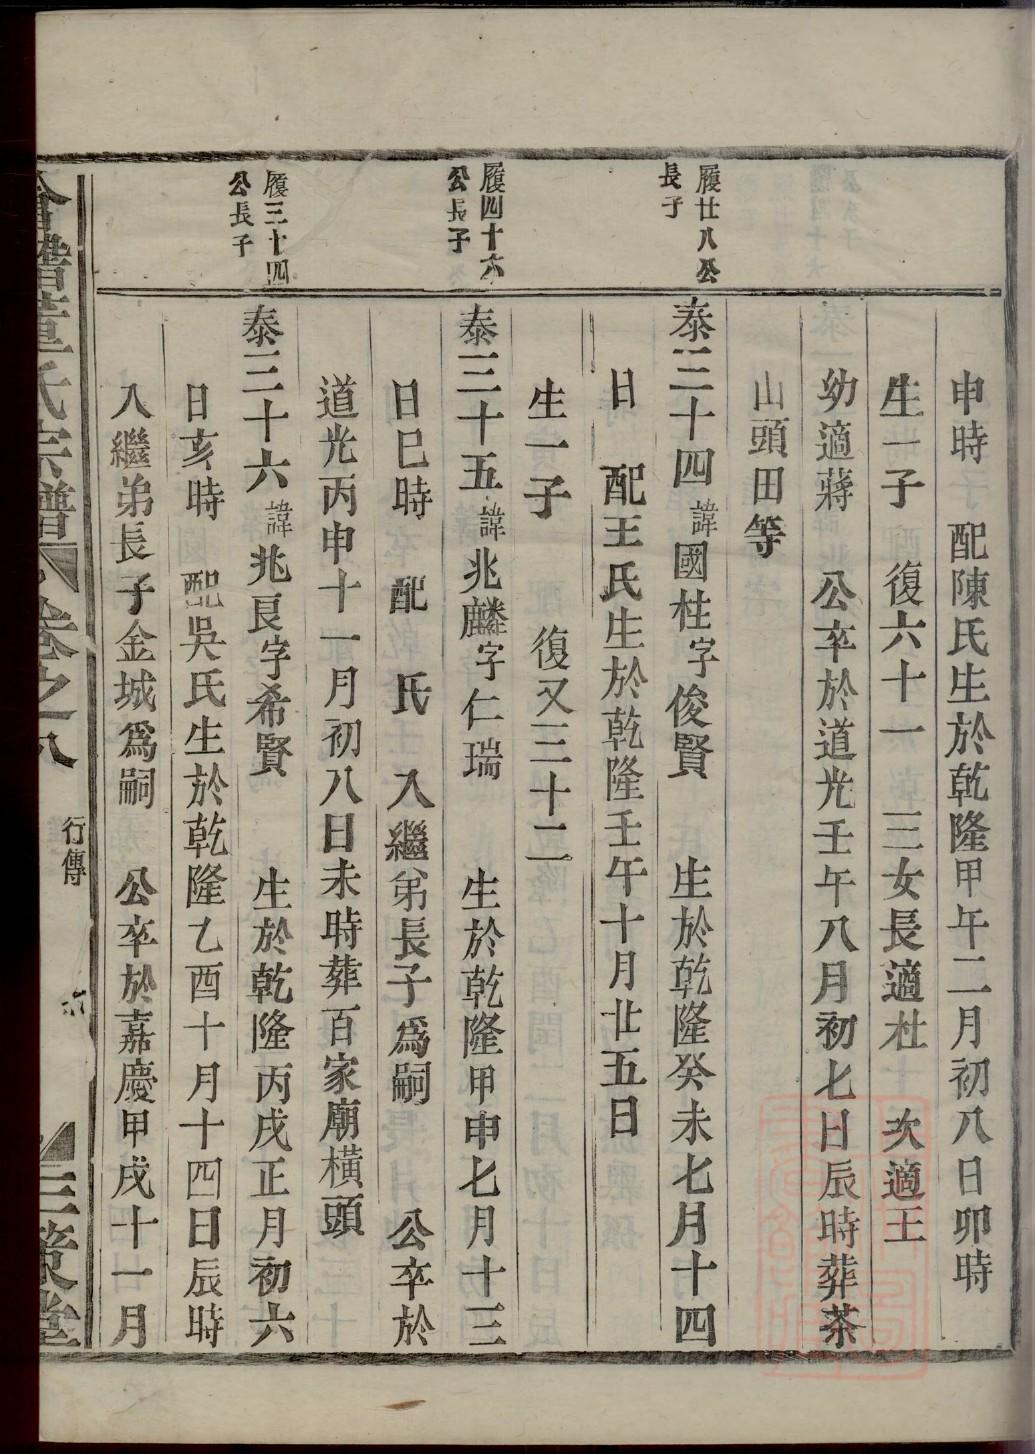 申時　配陳氏生於乾隆甲午二月初八日卯時
生一子　復六十一　三女長適杜　次適王
幼適蔣　公卒於道光壬午八月初七日辰時葬茶
山頭田等
履廿八公
長子
泰三十四諱國柱字俊賢　生於乾隆癸未七月十四
日　配王氏生於乾隆壬午十月廿五日
生一子　復又三十二
履四十六
公長子
泰三十五諱兆麟字仁瑞　生於乾隆甲申七月十三
日巳時　配　氏　入繼弟長子爲嗣　公卒於
道光丙申十一月初八日未時葬百家廟橫頭
履三十四
公長子
泰三十六諱兆良字希賢　生於乾隆丙戌正月初六
日亥時　配吳氏生於乾隆乙酉十月十四日辰時
入繼弟長子金城爲嗣　公卒於嘉慶甲戌十一月
譜董氏宗譜　卷之八　行傳　三策堂